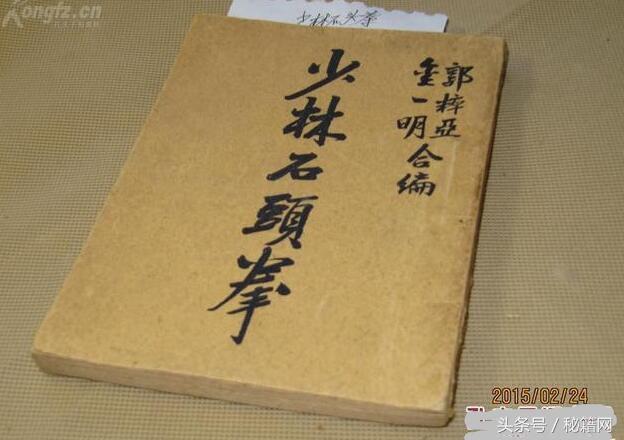 Kongfz.cn
少林石头拳
郭粹亞
金一明合編
少林石頭拳
2015/02/24
头条号 / 秘籍网